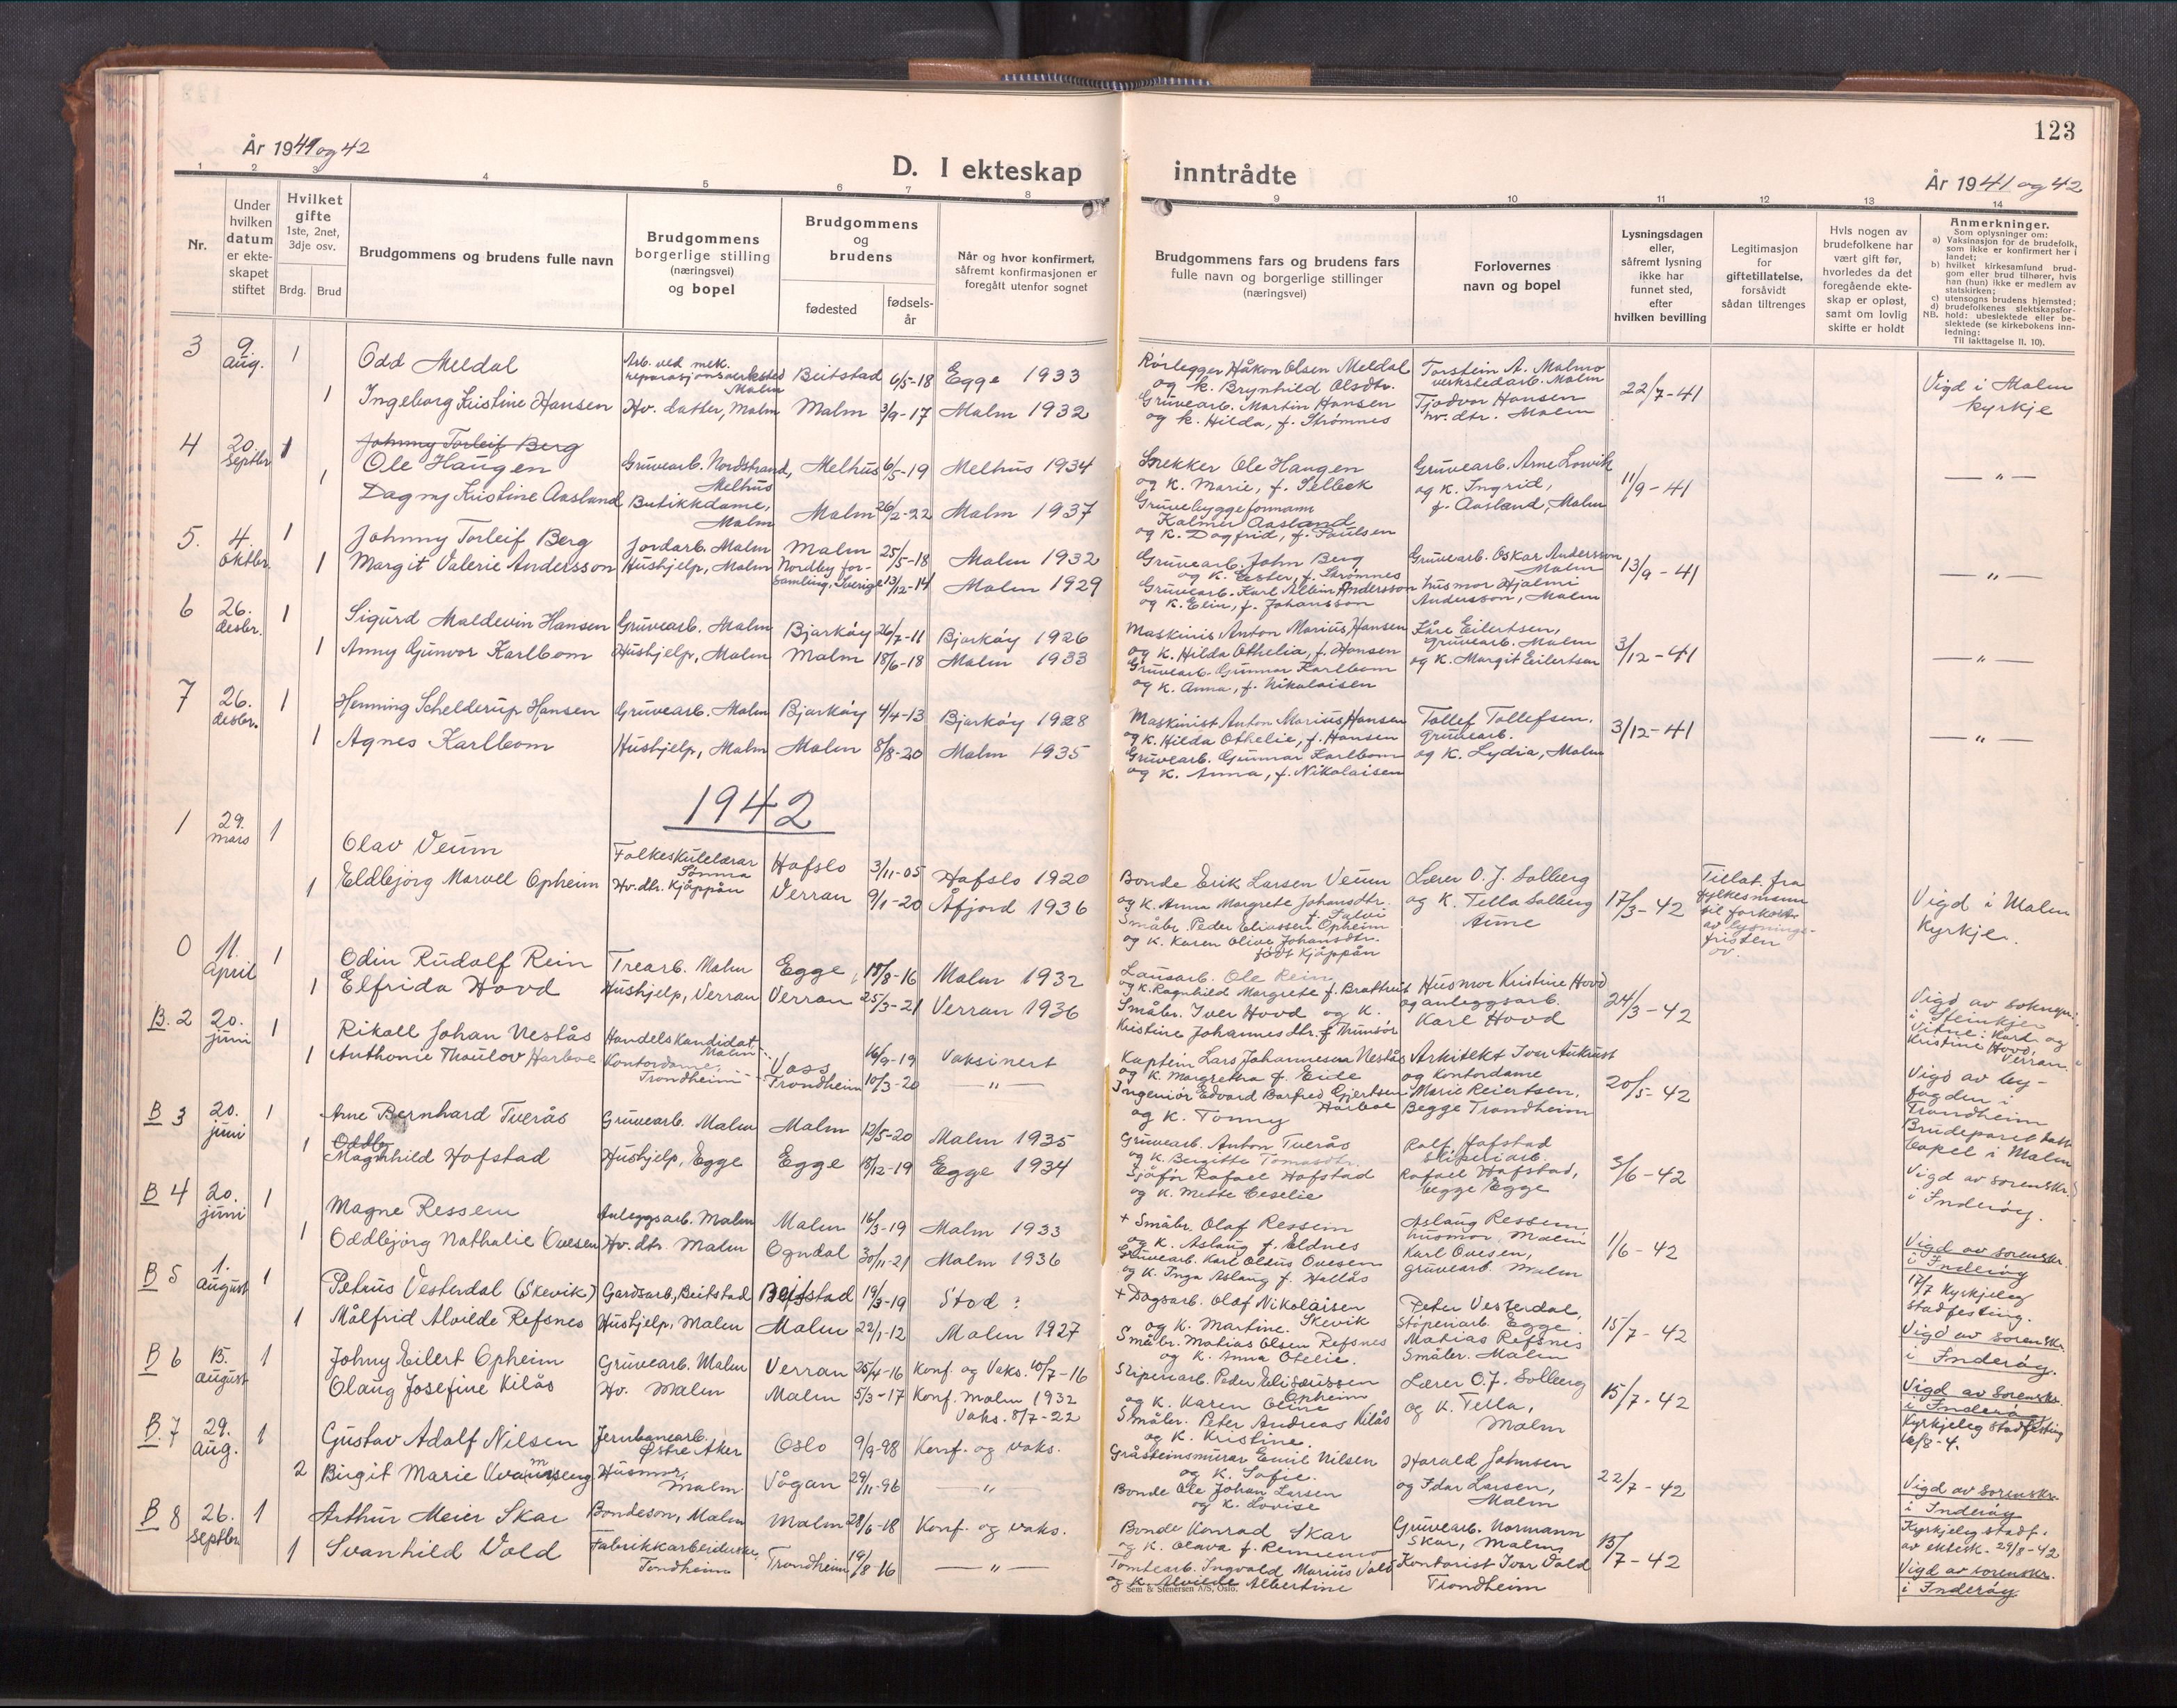 123
År 1941 og 42
D. I ekteskap inntrådte
År 1941 og 42
1 2 3 4 5 6 7 8 9 10 11 12 13 14
Nr.
Under hvilken datum er ekte-skapet stiftet
Hvilket gifte 1ste, 2net, 3dje osv.
Brdg. Brud
Brudgommens og brudens fulle navn
Brudgommens borgerlige stilling (næringsvei) og bopel
Brudgommens og brudens
fødested
fødsels-år
Når og hvor konfirmert, såfremt konfirmasjonen er foregått utenfor sognet
Brudgommens fars og brudens fars fulle navn og borgerlige stillinger (næringsvei)
Forlovernes navn og bopel
Lysningsdagen eller, såfremt lysning ikke har funnet sted, efter hvilken bevilling
Legitimasjon for giftetillatelse, forsåvidt sådan tiltrenges
Hvis nogen av brudefolkene har vært gift før, hvorledes da det foregående ekte-skap er opløst, samt om lovlig skifte er holdt
Anmerkninger.
Som oplysninger om:
a) Vaksinasjon for de brudefolk, som ikke er konfirmert her i landet;
b) hvilket kirkesamfund brud-gom eller brud tilhører, hvis han (hun) ikke er medlem av statskirken;
c) utensogns brudens hjemsted;
d) brudefolkenes slektskapsfor-hold: ubeslektede eller be-slektede (se kirkebokens inn-ledning:
NB.
Til iakttagelse II. 10).
3 9. aug. 1 Odd Meldal Arb. ved mek. reparasjonsverksted Malm Beitstad 6/5-18 Egge 1933
1 Ingeborg Kristine Hansen Hv. datter, Malm Malm 3/9-17 Malm 1932
Rørlegger Håkon Olsen Meldal
og k. Brynhild Olsdtr.
Gruvearb. Martin Hansen
og k. Hilda, f. Strømnes
Torstein A. Malmo
verkstedarb. Malm
Tjodvor Hansen
hv. dtr. Malm
22/7-41
Vigd i Malm kyrkje
4 20. Septbr 1 Johnny Torleif Berg
Ole Haugen Gruvearb. Nordstrand, Melhus Melhus 6/5-19 Melhus 1934
1 Dagny Kristine Aasland Butikkdame, Malm Malm 26/2-22 Malm 1937
Snekker Ole Haugen
og K. Marie, f. Selbek
Gruvebyggeformann
Kalmer Aasland
og K. Dagfrid, f. Paulsen
Gruvearb. Arne Lowik
og K. Ingrid,
f. Aasland, Malm
11/9-41
— " —
5. 4. oktbr. 1 Johnny Torleif Berg Jordarb. Malm Malm 25/5-18 Malm 1932
1 Margit Valerie Andersson Hushjelp, Malm Nordby for-samling, Sverige 13/12-14 Malm 1929
Gruvearb. John Berg
og K. Ester, f. Strømnes
Gruvearb. Karl Albin Andersson
og K. Elin, f. Johansson
Gruvearb. Oskar Andersson
Malm
husmor Hjalmi
Andersson, Malm
13/9-41
— " —
6 26. desbr. 1 Sigurd Maldevin Hansen Gruvearb. Malm Bjarkøy 26/7-11 Bjarkøy 1926
1 Anny Gunvor Karlbom Hushjelp, Malm Malm 18/6-18 Malm 1933
Maskinis Anton Marius Hansen
og K. Hilda Othelia, f. Hansen
Gruvearb. Gunnar Karlbom
og K. Anna, f. Nikolaisen
Kåre Eilertsen,
Gruvearb. Malm
og K. Margit Eilertsen
3/12-41
— " —
7 26. desbr. 1 Henning Schelderup Hansen Gruvearb. Malm Bjarkøy 4/4-13 Bjarkøy 1928
1 Agnes Karlbom Hushjelp, Malm Malm 8/8-20 Malm 1935
Maskinist Anton Marius Hansen
og K. Hilda Othelie, f. Hansen
Gruvearb. Gunnar Karlbom
og K. Anna, f. Nikolaisen
Tollef Tollefsen,
gruvearb.
og K. Lydia, Malm
3/12-41
— " —
1942
1 29. mars 1 Olav Veum Folkeskulelærar Sømna Hafslo 3/11-05 Hafslo 1920
1 Eldbjørg Marvel Opheim Hv. dtr. Kjøppån Verran 9/1-20 Åfjord 1936
Bonde Erik Larsen Veum
og K. Anna Margrete Johansdtr.
Småbr. Peder Eliassen Opheim
og K. Karen Olive Johansdtr.
født Kjøppån
Lærer O. J. Solberg
og K. Tella Solberg
17/3-42
Tillat. fra fylkesmann til forkort. av lysnings-fristen
Vigd i Malm Kyrkje.
0 11. april 1 Odin Rudolf Rein Trearb. Malm Egge 18/8-16 Malm 1932
1 Elfrida Hovd Hushjelp, Verran Verran 25/3-21 Verran 1936
Lausarb. Ole Rein
og K. Ragnhild Margrete f. Brattrut
Småbr. Iver Hovd og K.
Kristine Johannesdtr.
Husmor Kristine Hovd
og anleggsarb.
Karl Hovd
24/3-42
Vigd av sokuepr. i Steinkjer
Vitne: Karl og Kristine Hovd, Verran.
B. 2 20. juni 1 Rikall Johan Nestås Handelskandidat Malm Voss 16/9-19 Vaksinert
1 Anthonie Thaulov Harboe Kontordame, Trondheim Trondheim 10/3-20 — " —
Kaptein Lars Johannesen Nestås
og K. Margretha f. Eide
Ingeniør Edvard Barfred Gjertsen Harboe
og K. Tonny
Arkitekt Ivar Aukrust
og Kontordame
Marie Reiertsen,
Begge Trondheim
20/5-42
Vigd av by-fogden i Trondheim
Brudeparet
bopel i Malm
B 3 20. juni 1 Arne Bernhard Tverås Gruvearb. Malm Malm 12/5-20 Malm 1935
1 Oddby Magnhild Hofstad Hushjelp, Egge Egge 18/12-19 Egge 1934
Gruvearb. Anton Tverås
og K. Bergitte Tomasdtr.
Sjåfør Rafael Hofstad
og K. Mette Ceselie
Rolf Hofstad
Stiperiarb.
Rafael Hofstad,
begge Egge
3/6-42
Vigd av sorenskr. i Inderøy.
B 4 20. juni 1 Magne Ressem Anleggsarb. Malm Malm 16/3-19 Malm 1933
1 Oddbjørg Nathalie Ovesen Hv. dtr. Malm Ogndal 30/11-21 Malm 1936
+ Småbr. Olaf Ressem
og K. Aslaug f. Eldnes
Gruvearb. Karl Oldus Ovesen
og K. Inga Aslaug f. Hallås
Aslaug Ressem,
husmor, Malm
Karl Ovesen,
gruvearb. Malm
1/6-42
Vigd av sorenskr. i Inderøy
B 5 1. august 1 Petrus Vesterdal (Skevik) Gardsarb, Beitstad Beitstad 19/3-19 Stod :
1 Målfrid Alvilde Refsnes Hushjelp, Malm Malm 22/1-12 Malm 1927
+ Dagsarb. Olaf Nikolaisen
og K. Martine. Skevik
Småbr. Matias Olsen Refsnes
og K. Anna Otelie.
Peter Vesterdal,
Stiperiarb. Egge
Matias Refsnes
Småbr. Malm
15/7-42
17/7 Kyrkjeleg stadfesting.
Vigd av sorenskr. i Inderøy.
B 6 15. august 1 Johny Eilert Opheim Gruvearb. Malm Verran 25/4-16 Konf. og Vaks. 10/7-16
Olaug Josefine Kilås Hv. Malm Malm 5/3-17 Konf. Malm 1932
Vaks. 8/7-22
Stiperiarb. Peder Elisæussen Opheim
og K. Karen Oline
Småbr. Peter Andreas Kilås
og K. Kristine.
Lærer O. J. Solberg
og K. Tella,
Malm
15/7-42
Vigd av Sorenskr. i Inderøy
Kyrkjeleg stadfesting
16/8-4.
B. 7 29. aug. 1 Gustav Adolf Nilsen Jernbanearb. Østre Aker Oslo 9/9-98 Konf. og vaks.
2 Birgit Marie Kvamseng Husmor, Malm Vågan 29/11-96 — " —
Gråsteinsmurar Emil Nilsen
og K. Sofie.
Bonde Ole Johan Larsen
og K. Lovise
Harald Johnsen
og Idar Larsen,
Malm
22/7-42
Vigd av Sorenskr. i Inderøy
Kyrkjeleg stadf. av ektesk. 29/8-42
B 8 26. Septbr 1 Arthur Meier Skar Bondeson, Malm Malm 28/6-18 Konf. og vaks.
1 Svanhild Vold Fabrikkarbeiderske Tondheim Trondheim 19/8-16 — " —
Bonde Konrad Skar
og K. Olava
Tomtearb. Ingvald Marius Vold
og K. Alvilde Albertine
Gruvearb. Normann
Skar, Malm,
Kontorist Ivar Vold
Trondheim
13/7-42
Vigd av sorenskr. i Inderøy
Sem & Stenersen A/S, Oslo.